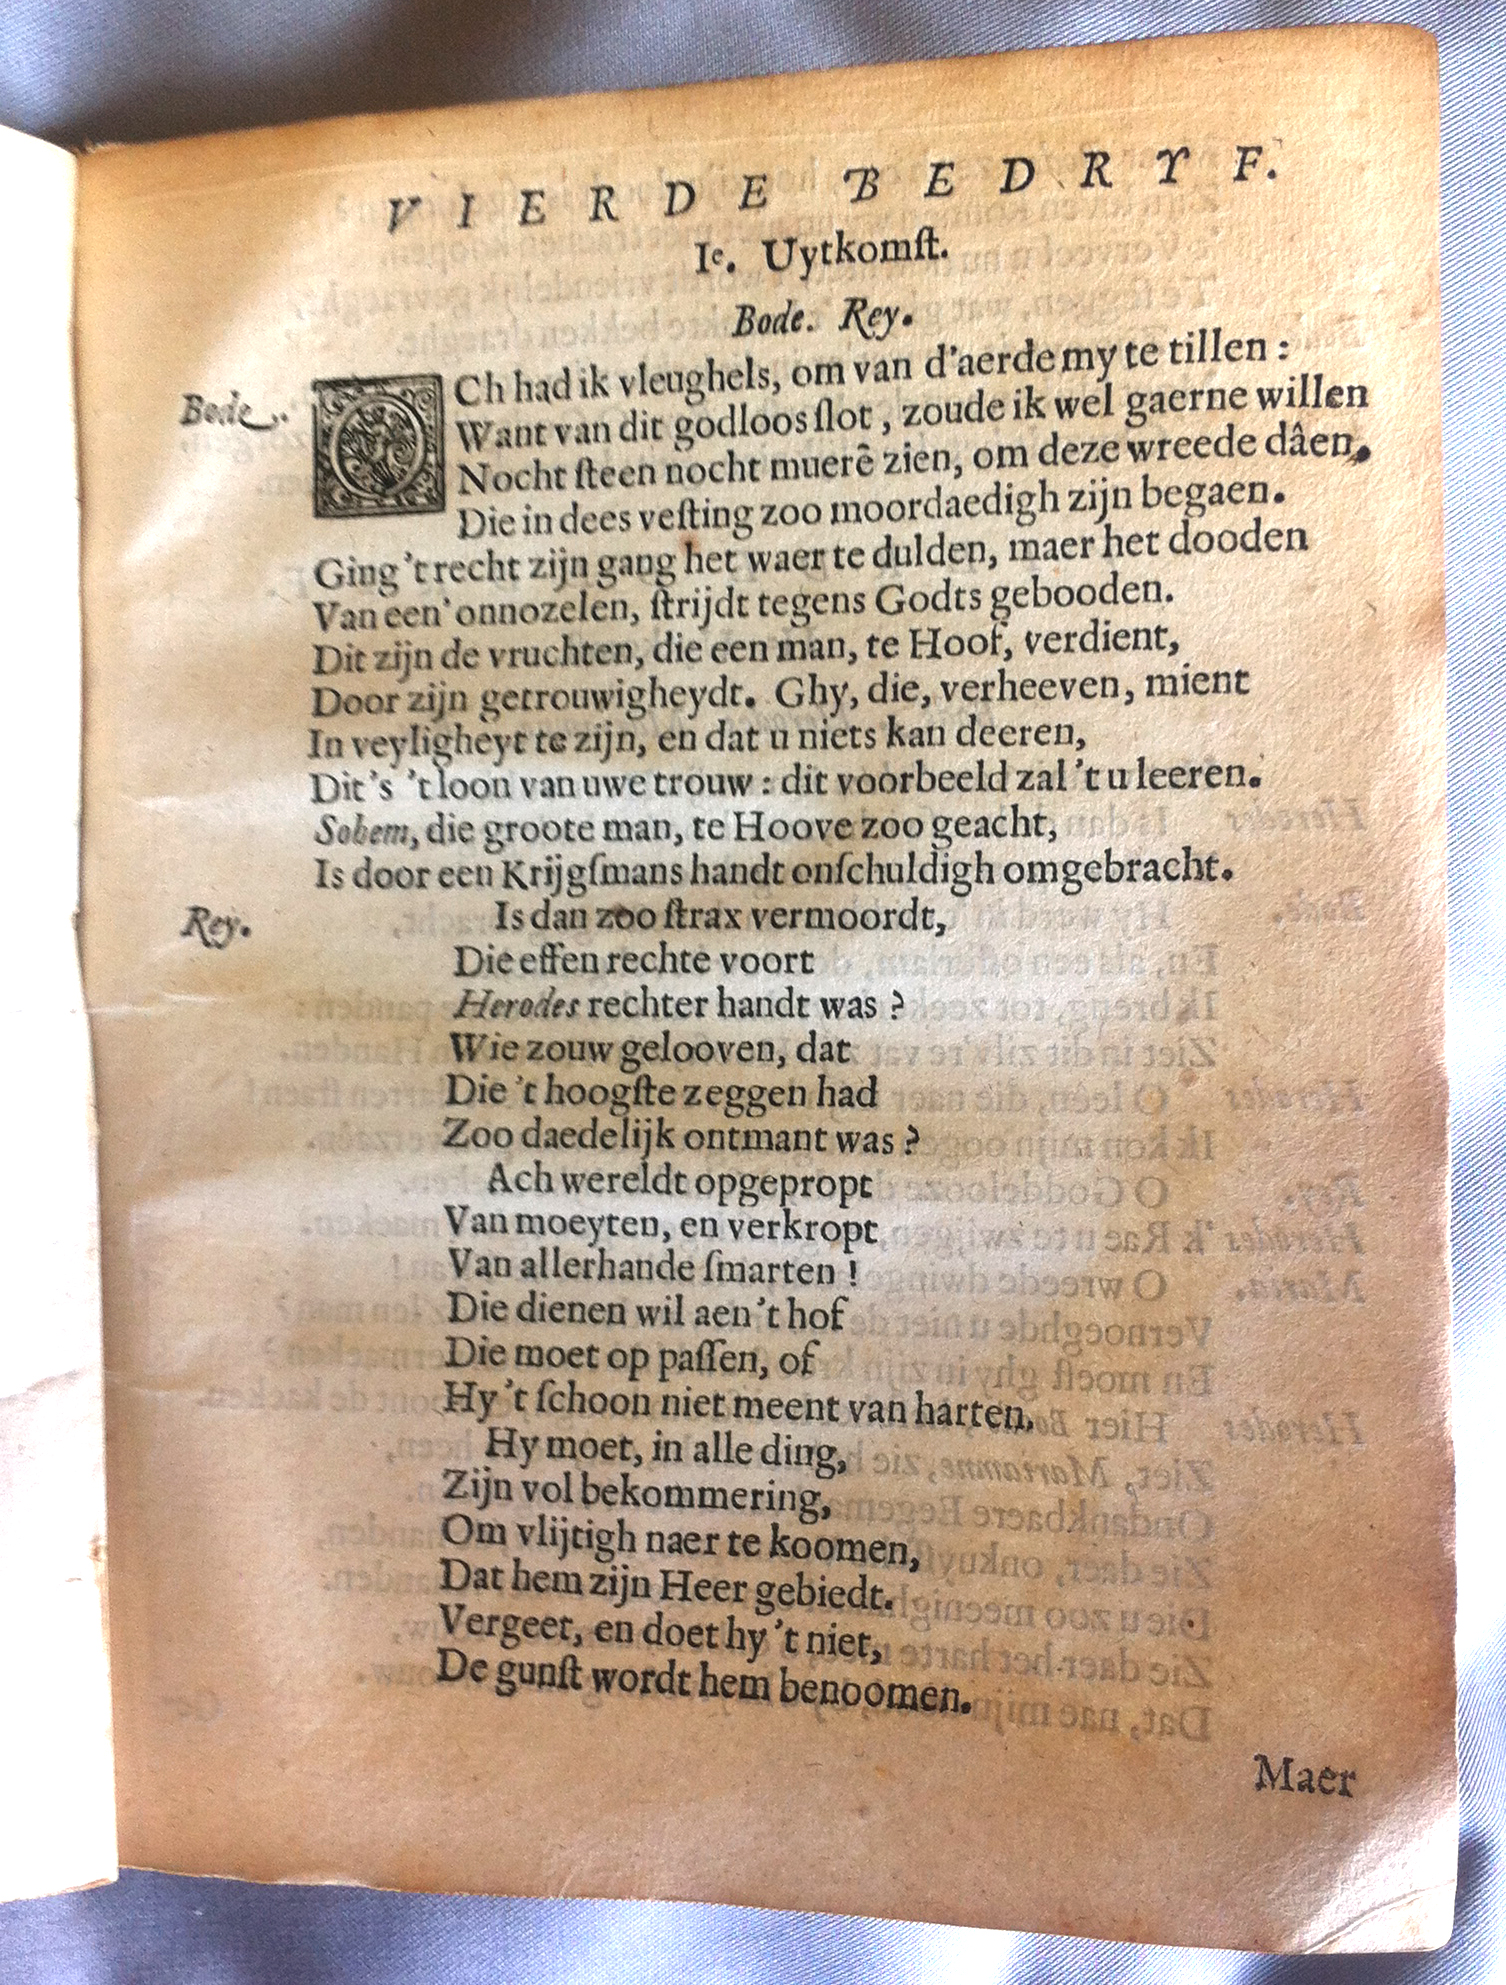 VIERDE BEDRYF.
Iᵉ. Uytkomſt.
Bode. Rey.
Bode. OCh had ik vleughels, om van d'aerde my te tillen :
Want van dit godloos ſlot, zoude ik wel gaerne willen
Nocht ſteen nocht muerê zien, om deze wreede dâen,
Die in dees veſting zoo moordaedigh zijn begaen.
Ging 't recht zijn gang het waer te dulden, maer het dooden
Van een' onnozelen, ſtrijdt tegens Godts gebooden.
Dit zijn de vruchten, die een man, te Hoof, verdient,
Door zijn getrouwigheydt. Ghy, die, verheeven, mient
In veyligheyt te zijn, en dat u niets kan deeren,
Dit 's 't loon van uwe trouw : dit voorbeeld zal 't u leeren.
Sohem, die groote man, te Hoove zoo geacht,
Is door een Krijgſmans handt onſchuldigh omgebracht.
Rey. Is dan zoo ſtrax vermoordt,
Die effen rechte voort
Herodes rechter handt was ?
Wie zouw gelooven, dat
Die 't hoogſte zeggen had
Zoo daedelijk ontmant was ?
Ach wereldt opgepropt
Van moeyten, en verkropt
Van allerhande ſmarten !
Die dienen wil aen 't hof
Die moet op paſſen, of
Hy 't ſchoon niet meent van harten.
Hy moet, in alle ding,
Zijn vol bekommering,
Om vlijtigh naer te koomen,
Dat hem zijn Heer gebiedt.
Vergeet, en doet hy 't niet,
De gunſt wordt hem benoomen.
Maer